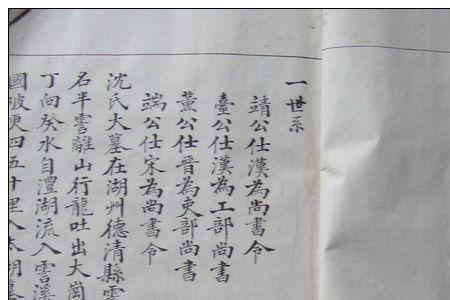 一世系
靖公仕漢為尚書令
臺公仕漢為工部尚書
薫公仕晉為吏部尚書
端公仕宋為尚書令
沈氏大墓在湖州德清縣雲
名半雲離山行龍吐出大崗
丁向癸水自澧湖流入雲溪
國破更四五十里入太湖墓